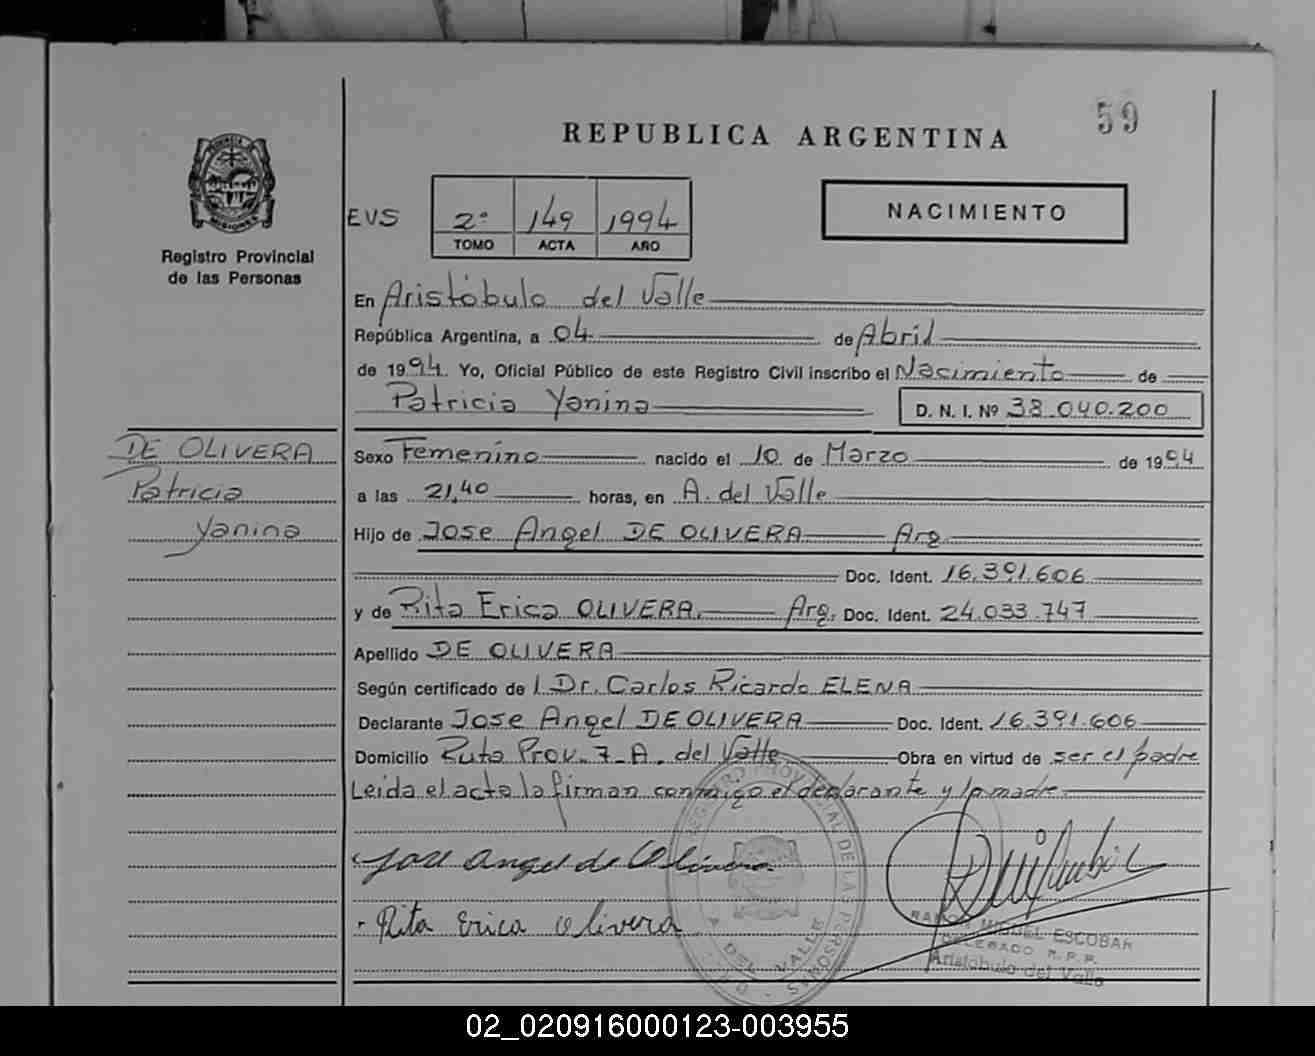 59
REPUBLICA ARGENTINA
PROVINCIA DE MISIONES
Registro Provincial
de las Personas
EVS
2º 149 1994
TOMO ACTA AÑO
NACIMIENTO
En Aristóbulo del Valle
República Argentina, a 04 de Abril
de 1994. Yo, Oficial Público de este Registro Civil inscribo el Nacimiento de
Patricia Yanina D. N. I. Nº 38.040.200
DE OLIVERA
Patricia
Yanina
Sexo Femenino nacido el 10 de Marzo de 1994
a las 21,40 horas, en A. del Valle
Hijo de Jose Angel DE OLIVERA Arg.
Doc. Ident. 16.391.606
y de Rita Erica OLIVERA. Arg. Doc. Ident. 24.033.747
Apellido DE OLIVERA
Según certificado de l Dr. Carlos Ricardo ELENA
Declarante Jose Angel DE OLIVERA Doc. Ident. 16.391.606
Domicilio Ruta Prov. 7_A. del Valle Obra en virtud de ser el padre
Leida el acta la firman conmigo el declarante y la madre.
Jose Angel de Olivera
Rita Erica Olivera
REGISTRO PROVINCIAL DE LAS PERSONAS
DEL VALLE
RAMON MIGUEL ESCOBAR
DELEGADO R.P.P.
Aristóbulo del Valle
02_020916000123-003955